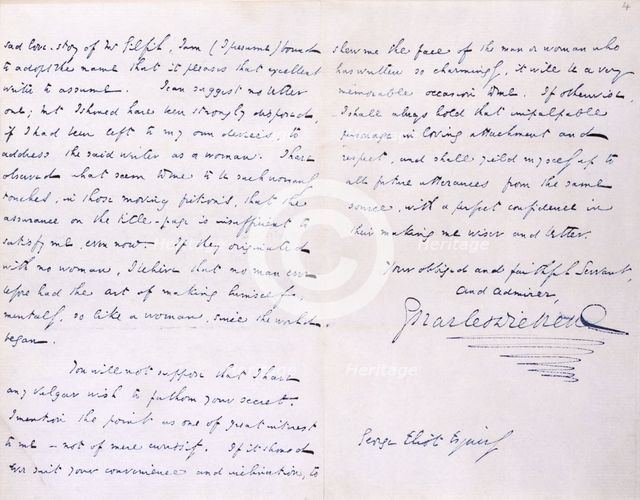 4
sad love-story of Mr Gilfil, I am (I presume) bound
to adopt the name that it pleases that excellent
writer to assume. I can suggest no better
one; but I should have been strongly disposed,
if I had been left to my own devices, to
address the said writer as a woman. I have
observed what seem to me to be such womanly
touches, in those moving fictions, that the
assurance on the title-page is insufficient to
satisfy me, even now. If they originated
with no woman, I believe that no man ever
before had the art of making himself,
mentally, so like a woman, since the world
began.
You will not suppose that I have
any vulgar wish to fathom your secret.
I mention the point as one of great interest
to me - not of mere curiosity. If it should
ever suit your convenience and inclination, to
shew me the face of the man or woman who
has written so charmingly, it will be a very
memorable occasion to me. If otherwise
I shall always hold that impalpable
personage in loving attachment and
respect, and shall yield myself up to
all future utterances from the same
source, with a perfect confidence in
their making me wiser and better.
Your obliged and faithful Servant,
and admirer,
Charles Dickens
George Eliot Esquire
Heritage
Heritage
Heritage
Heritage